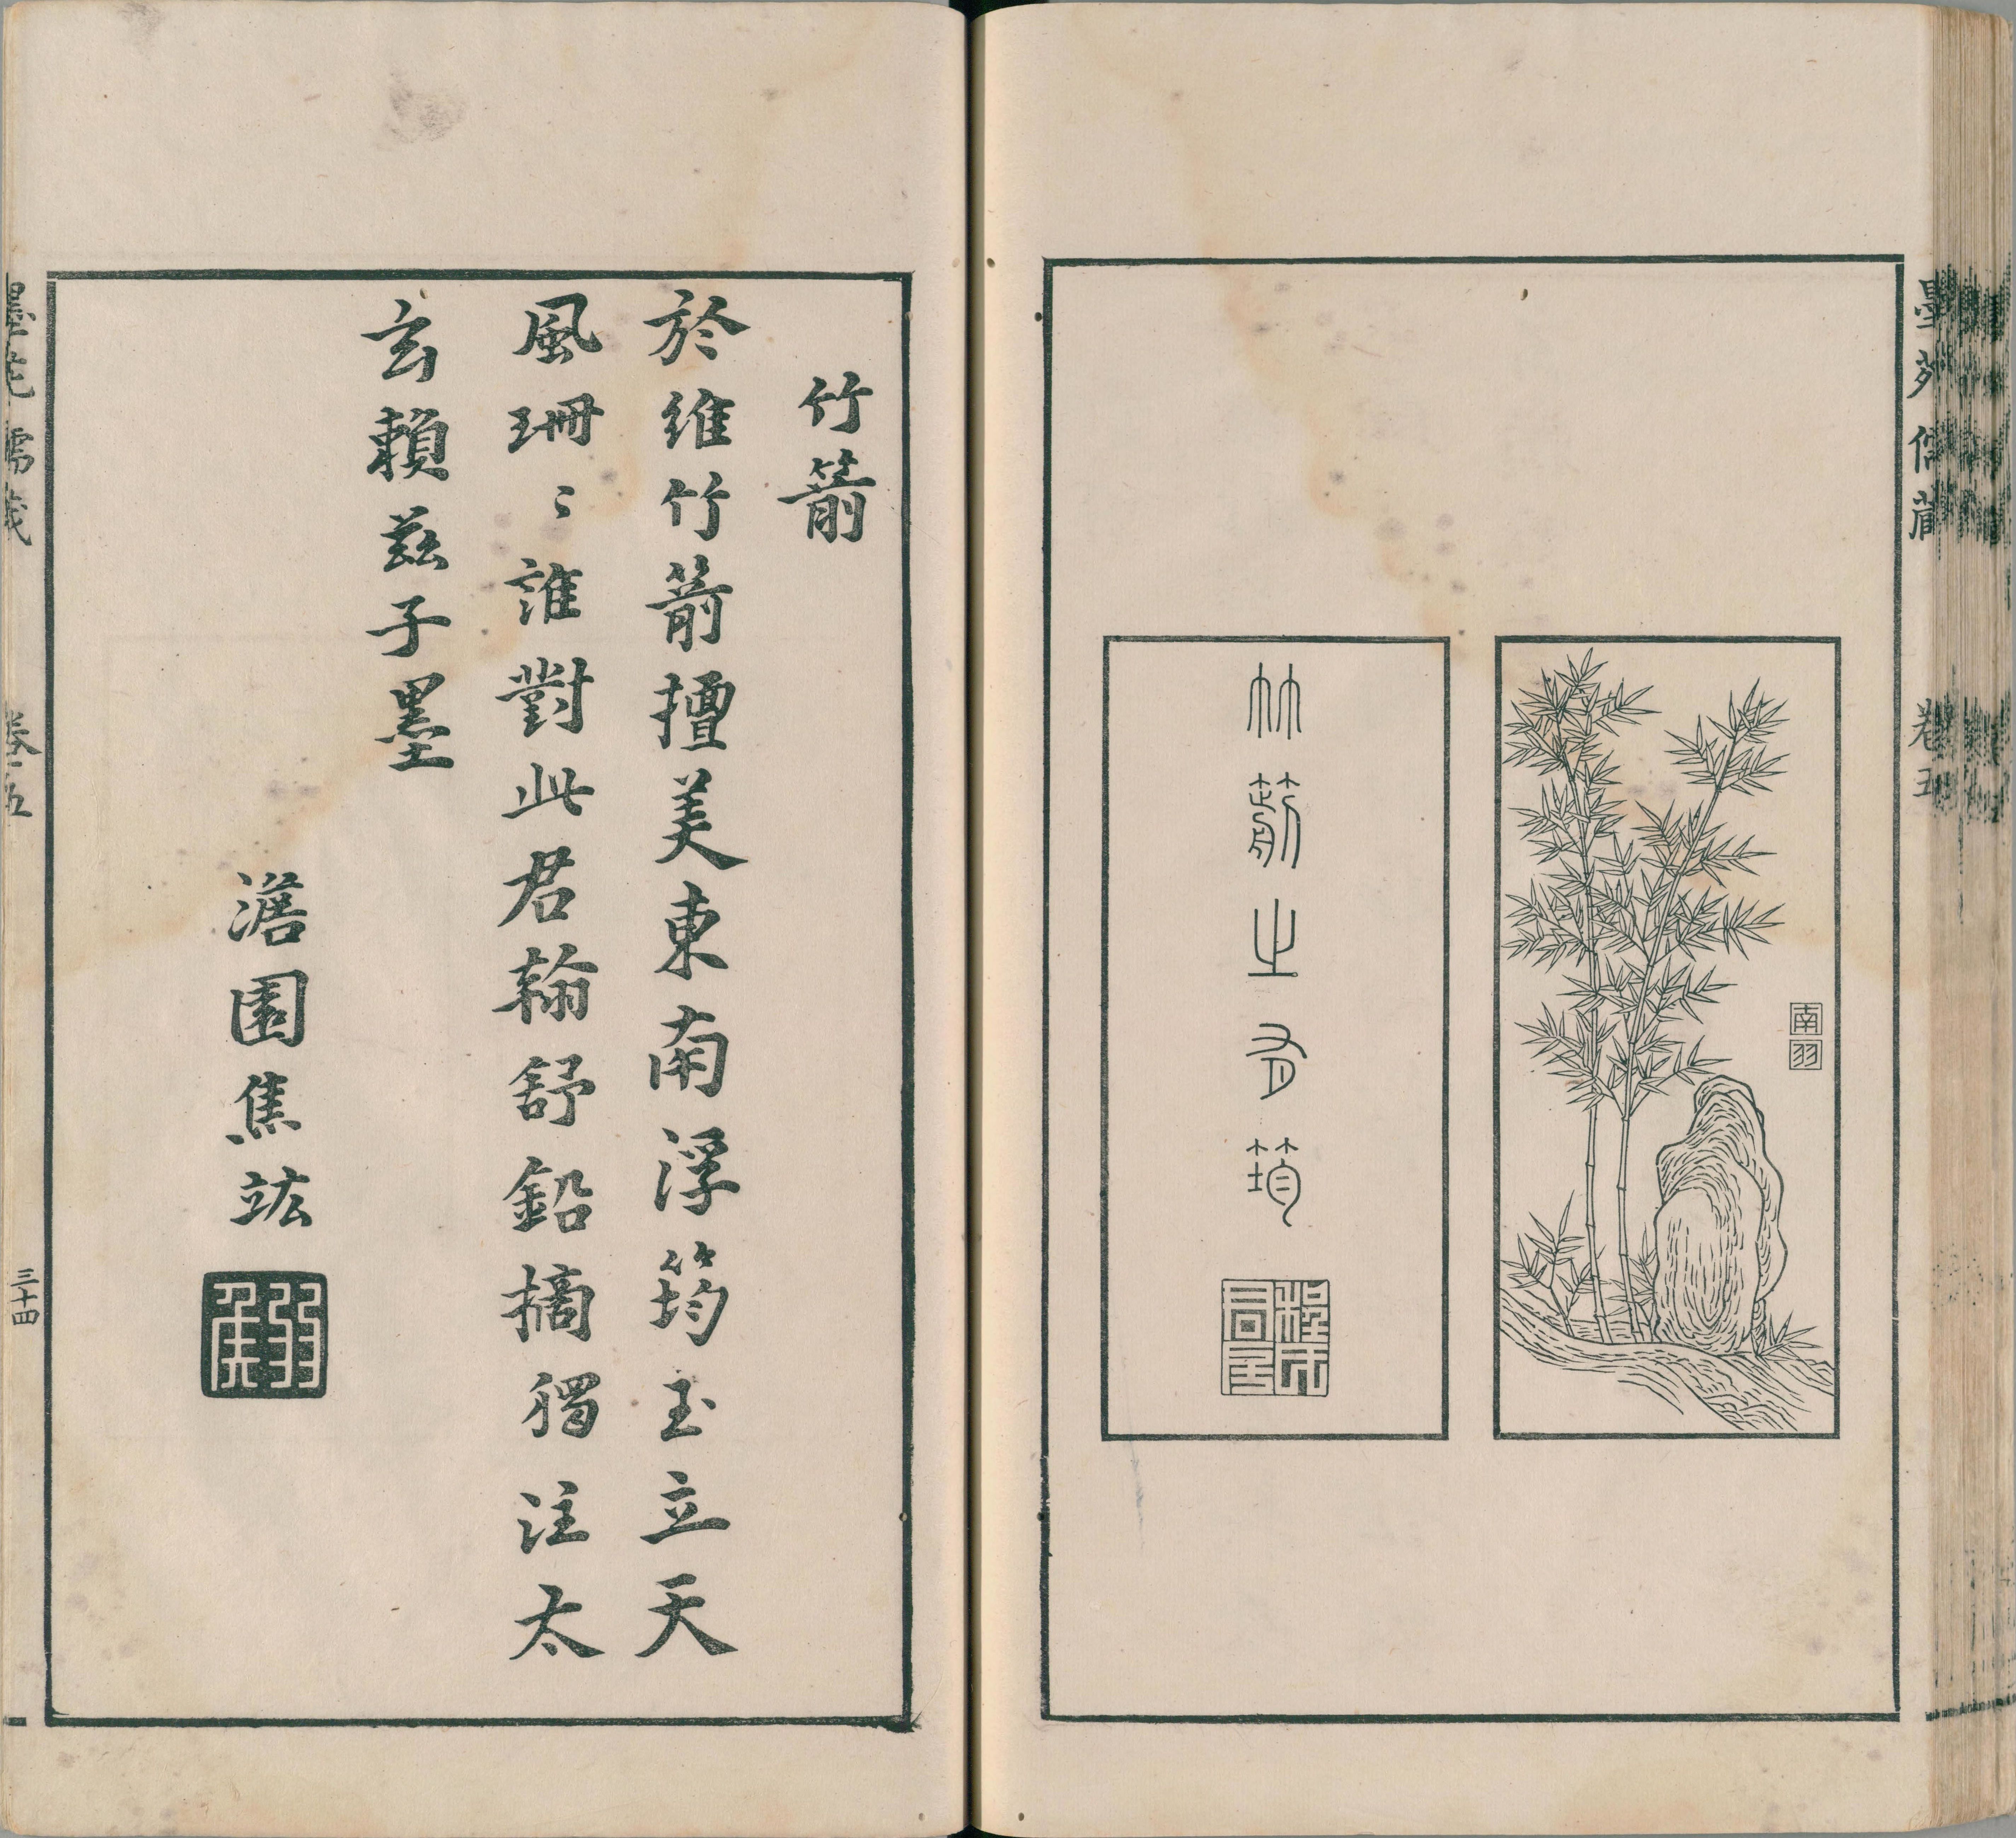 墨苑儒藏 卷五
南羽
竹箭之有筠
程氏君房
竹箭
於維竹箭擅美東南浮筠玉立天
風珊〻誰對此君翰舒鉛摘獨注太
玄賴茲子墨
澹園焦竑
弱侯
墨苑儒藏 卷五 三十四